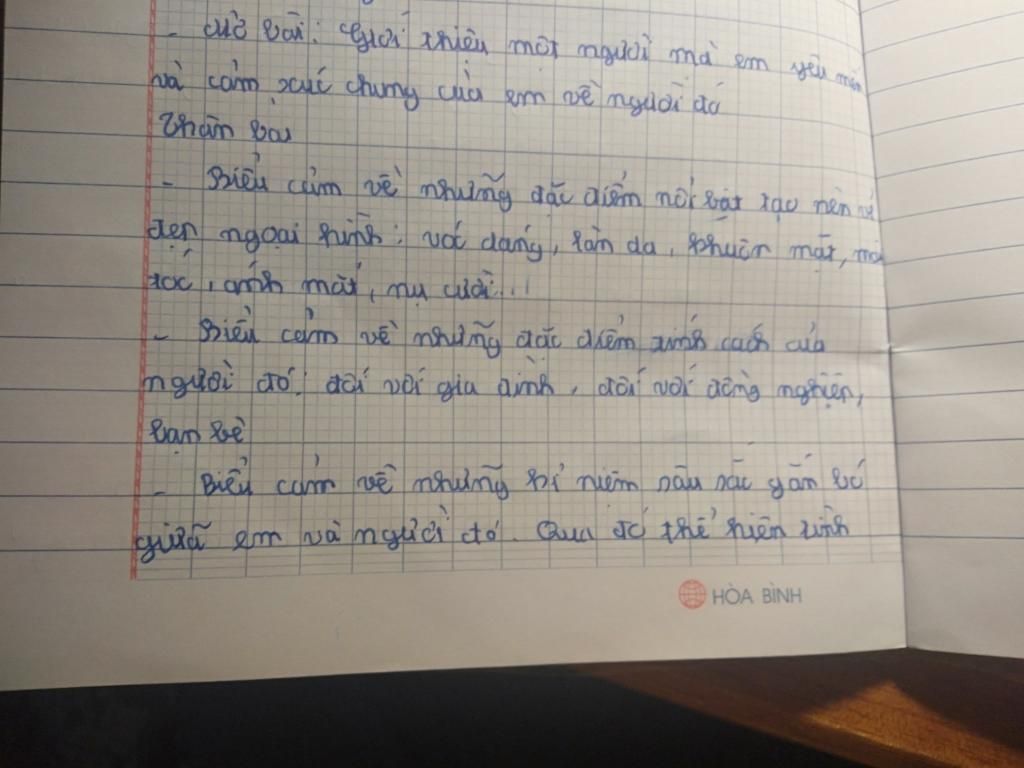 - Mở bài: Giới thiệu một người mà em yêu mến
và cảm xúc chung của em về người đó
Thân bài
- Biểu cảm về những đặc điểm nổi bật tạo nên vẻ
đẹp ngoại hình: vóc dáng, làn da, khuôn mặt, mái
tóc, ánh mắt, nụ cười...
- Biểu cảm về những đặc điểm tính cách của
người đó: đối với gia đình, đối với đồng nghiệp,
bạn bè
- Biểu cảm về những kỉ niệm sâu sắc gắn bó
giữa em và người đó. Qua đó thể hiện tình
HÒA BÌNH